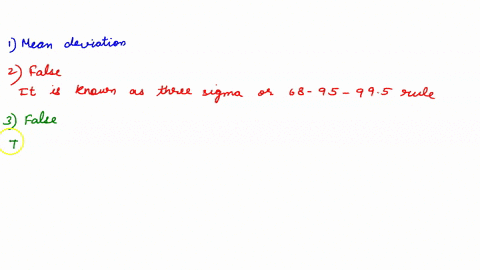 1) Mean deviation
2) False
It is known as three sigma or 68-95-99.5 rule
3) False
T